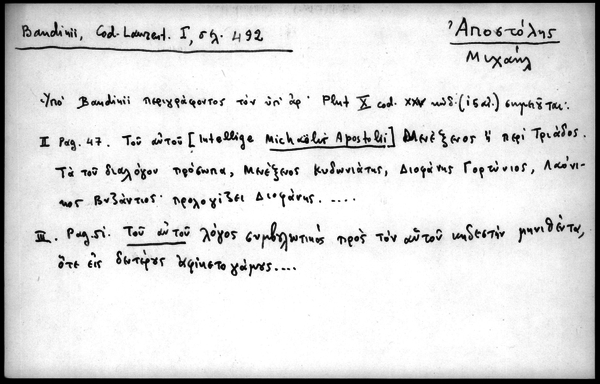 Bandinii, Cod. Laurent. I, σελ. 492
Ἀποστόλης
Μιχαήλ
Ὑπὸ Bandinii περιγράφοντος τὸν ὑπ' ἀρ. Plut X cod. κώδ. (ἰδ.) σημειοῦται:
II Pag. 47. Τοῦ αὐτοῦ [Intellige Michaelis Apostolii] Μενέξενος ἢ περὶ Τριάδος.
Τὰ τοῦ διαλόγου πρόσωπα, Μενέξενος Κυδωνιάτης, Διοφάνης Γορτύνιος, Λαόνι-
κος Βυζάντιος· προλογίζει Διοφάνης. ....
III. Pag. 51. Τοῦ αὐτοῦ λόγος συμβουλευτικὸς πρὸς τὸν αὑτοῦ κηδεστὴν μηνιθέντα,
ὅτε εἰς δευτέρους ἀφίκετο γάμους....